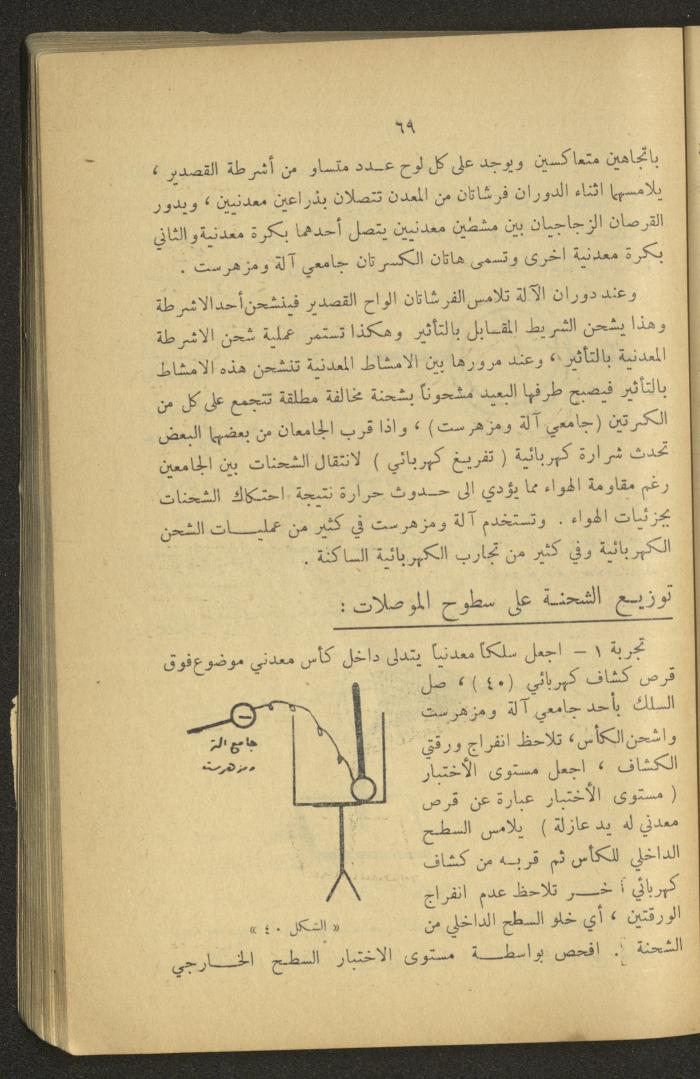 ٦٩
باتجاهين متعاكسين ويوجد على كل لوح عــدد متساو من أشرطة القصدير ،
يلامسها اثناء الدوران فرشاتان من المعدن تتصلان بذراعين معدنيين ، ويدور
القرصان الزجاجيان بين مشطين معدنيين يتصل أحدهما بكرة معدنية والثاني
بكرة معدنية اخرى وتسمى هاتان الكرتان جامعي آلة ومزهرست .
وعند دوران الآلة تلامس الفرشاتان الواح القصدير فينشحن أحد الاشرطة
وهذا يشحن الشريط المقــابل بالتأثير وهكذا تستمر عملية شحن الاشرطة
المعدنية بالتأثير ، وعند مرورها بين الامشاط المعدنية تنشحن هذه الامشاط
بالتأثير فيصبح طرفها البعيد مشحوناً بشحنة مخالفة مطلقة تتجمع على كل من
الكرتين (جامعي آلة ومزهرست) ، واذا قرب الجامعان من بعضهما البعض
تحدث شرارة كهربائية ( تفريغ كهربائي ) لانتقال الشحنات بين الجامعين
رغم مقاومة الهواء مما يؤدي الى حــدوث حرارة نتيجة احتكاك الشحنات
بجزئيات الهواء . وتستخدم آلة ومزهرست في كثير من عمليــات الشحن
الكهربائية وفي كثير من تجارب الكهربائية الساكنة .
توزيــع الشحنـة على سطوح الموصلات :
تجربة ١ – اجعل سلكاً معدنياً يتدلى داخل كأس معدني موضوع فوق
قرص كشاف كهربائي (٤٠) ، صل
السلك بأحد جامعي آلة ومزهرست
واشحن الكأس، تلاحظ انفراج ورقتي
الكشاف ، اجعل مستوى الأختبار
( مستوى الأختبار عبارة عن قرص
معدني له يد عازلة ) يلامس السطح
الداخلي للكأس ثم قربــه من كشاف
كهربائي آ خــر تلاحظ عدم انفراج
الورقتين ، أي خلو السطح الداخلي من
الشحنة . افحص بواسطــة مستوى الاختبار السطح الخــارجي
جامع الة
ومزهرست
« الشكل ٤٠ »